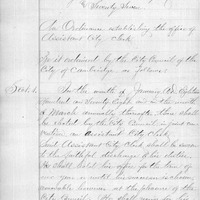 & Twenty Three
An Ordinance establishing the office of
Assistant City Clerk.
Be it ordained by the City Council of the
City of Cambridge as follows:
Sect. 1. In the month of January A.D. Eighteen
hundred and Seventy Eight and in the month
of March annually thereafter there shall
be elected by the City Council in joint con-
vention, an Assistant City Clerk.
Said Assistant City Clerk shall be sworn
to the faithful discharge of his duties.
He shall hold his office for the term of
one year or until his successor is chosen,
removable however at the pleasure of the
City Council. He shall